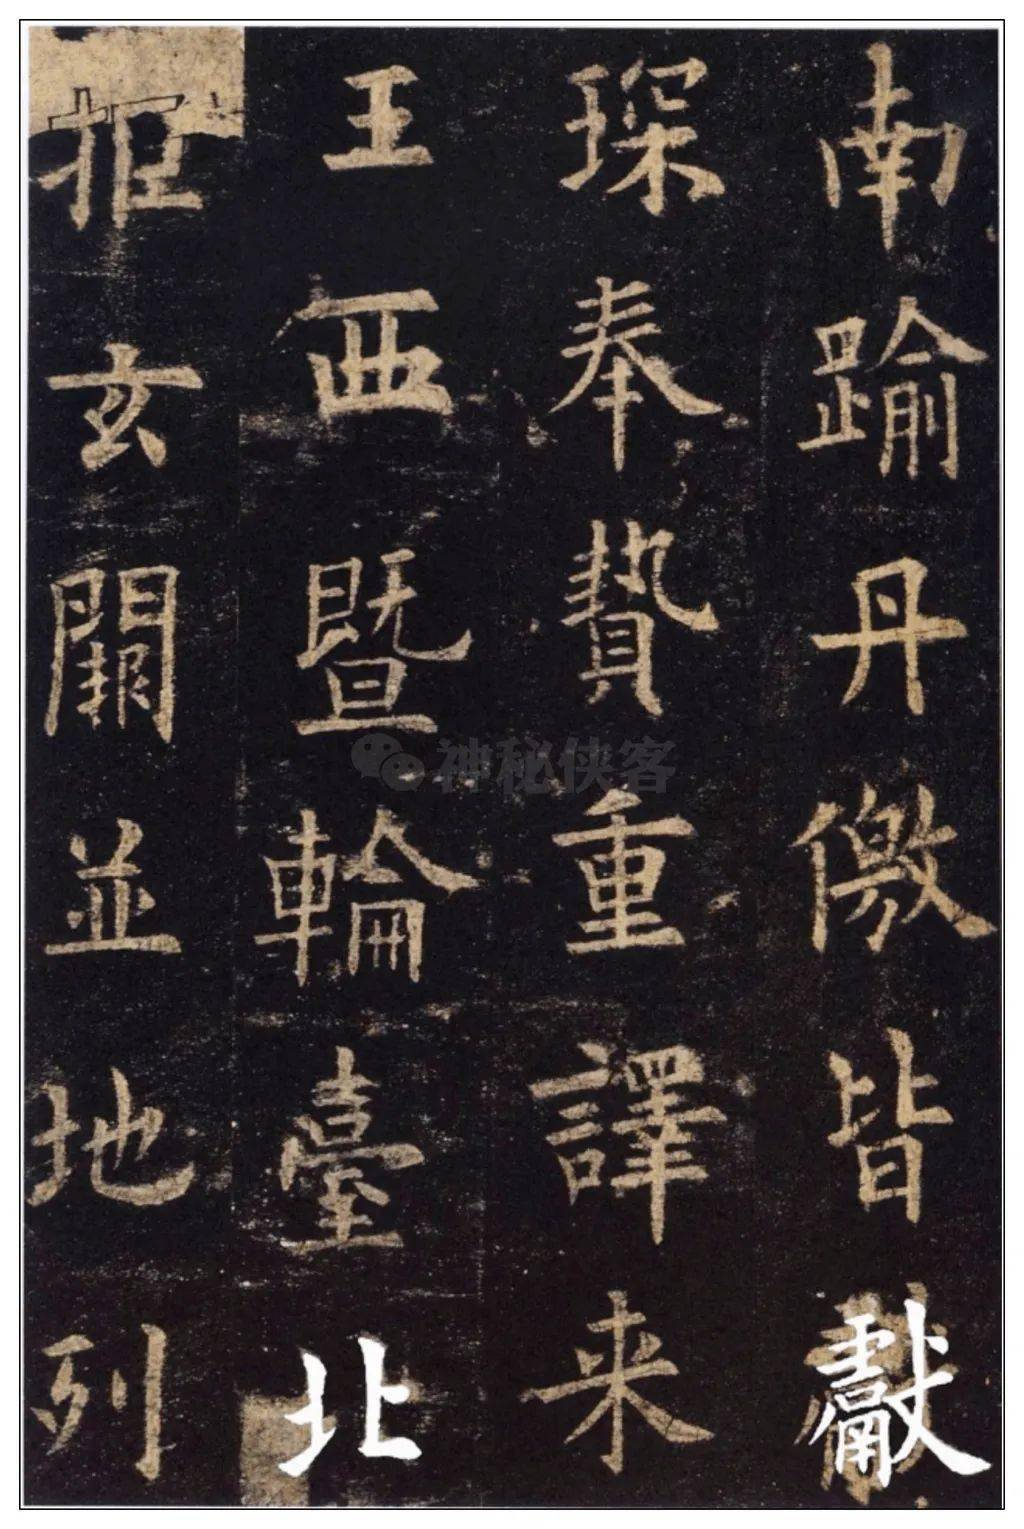 南踰丹儌皆獻
琛奉贄重譯来
王西暨輪臺北
拒玄闕並地列
神秘侠客